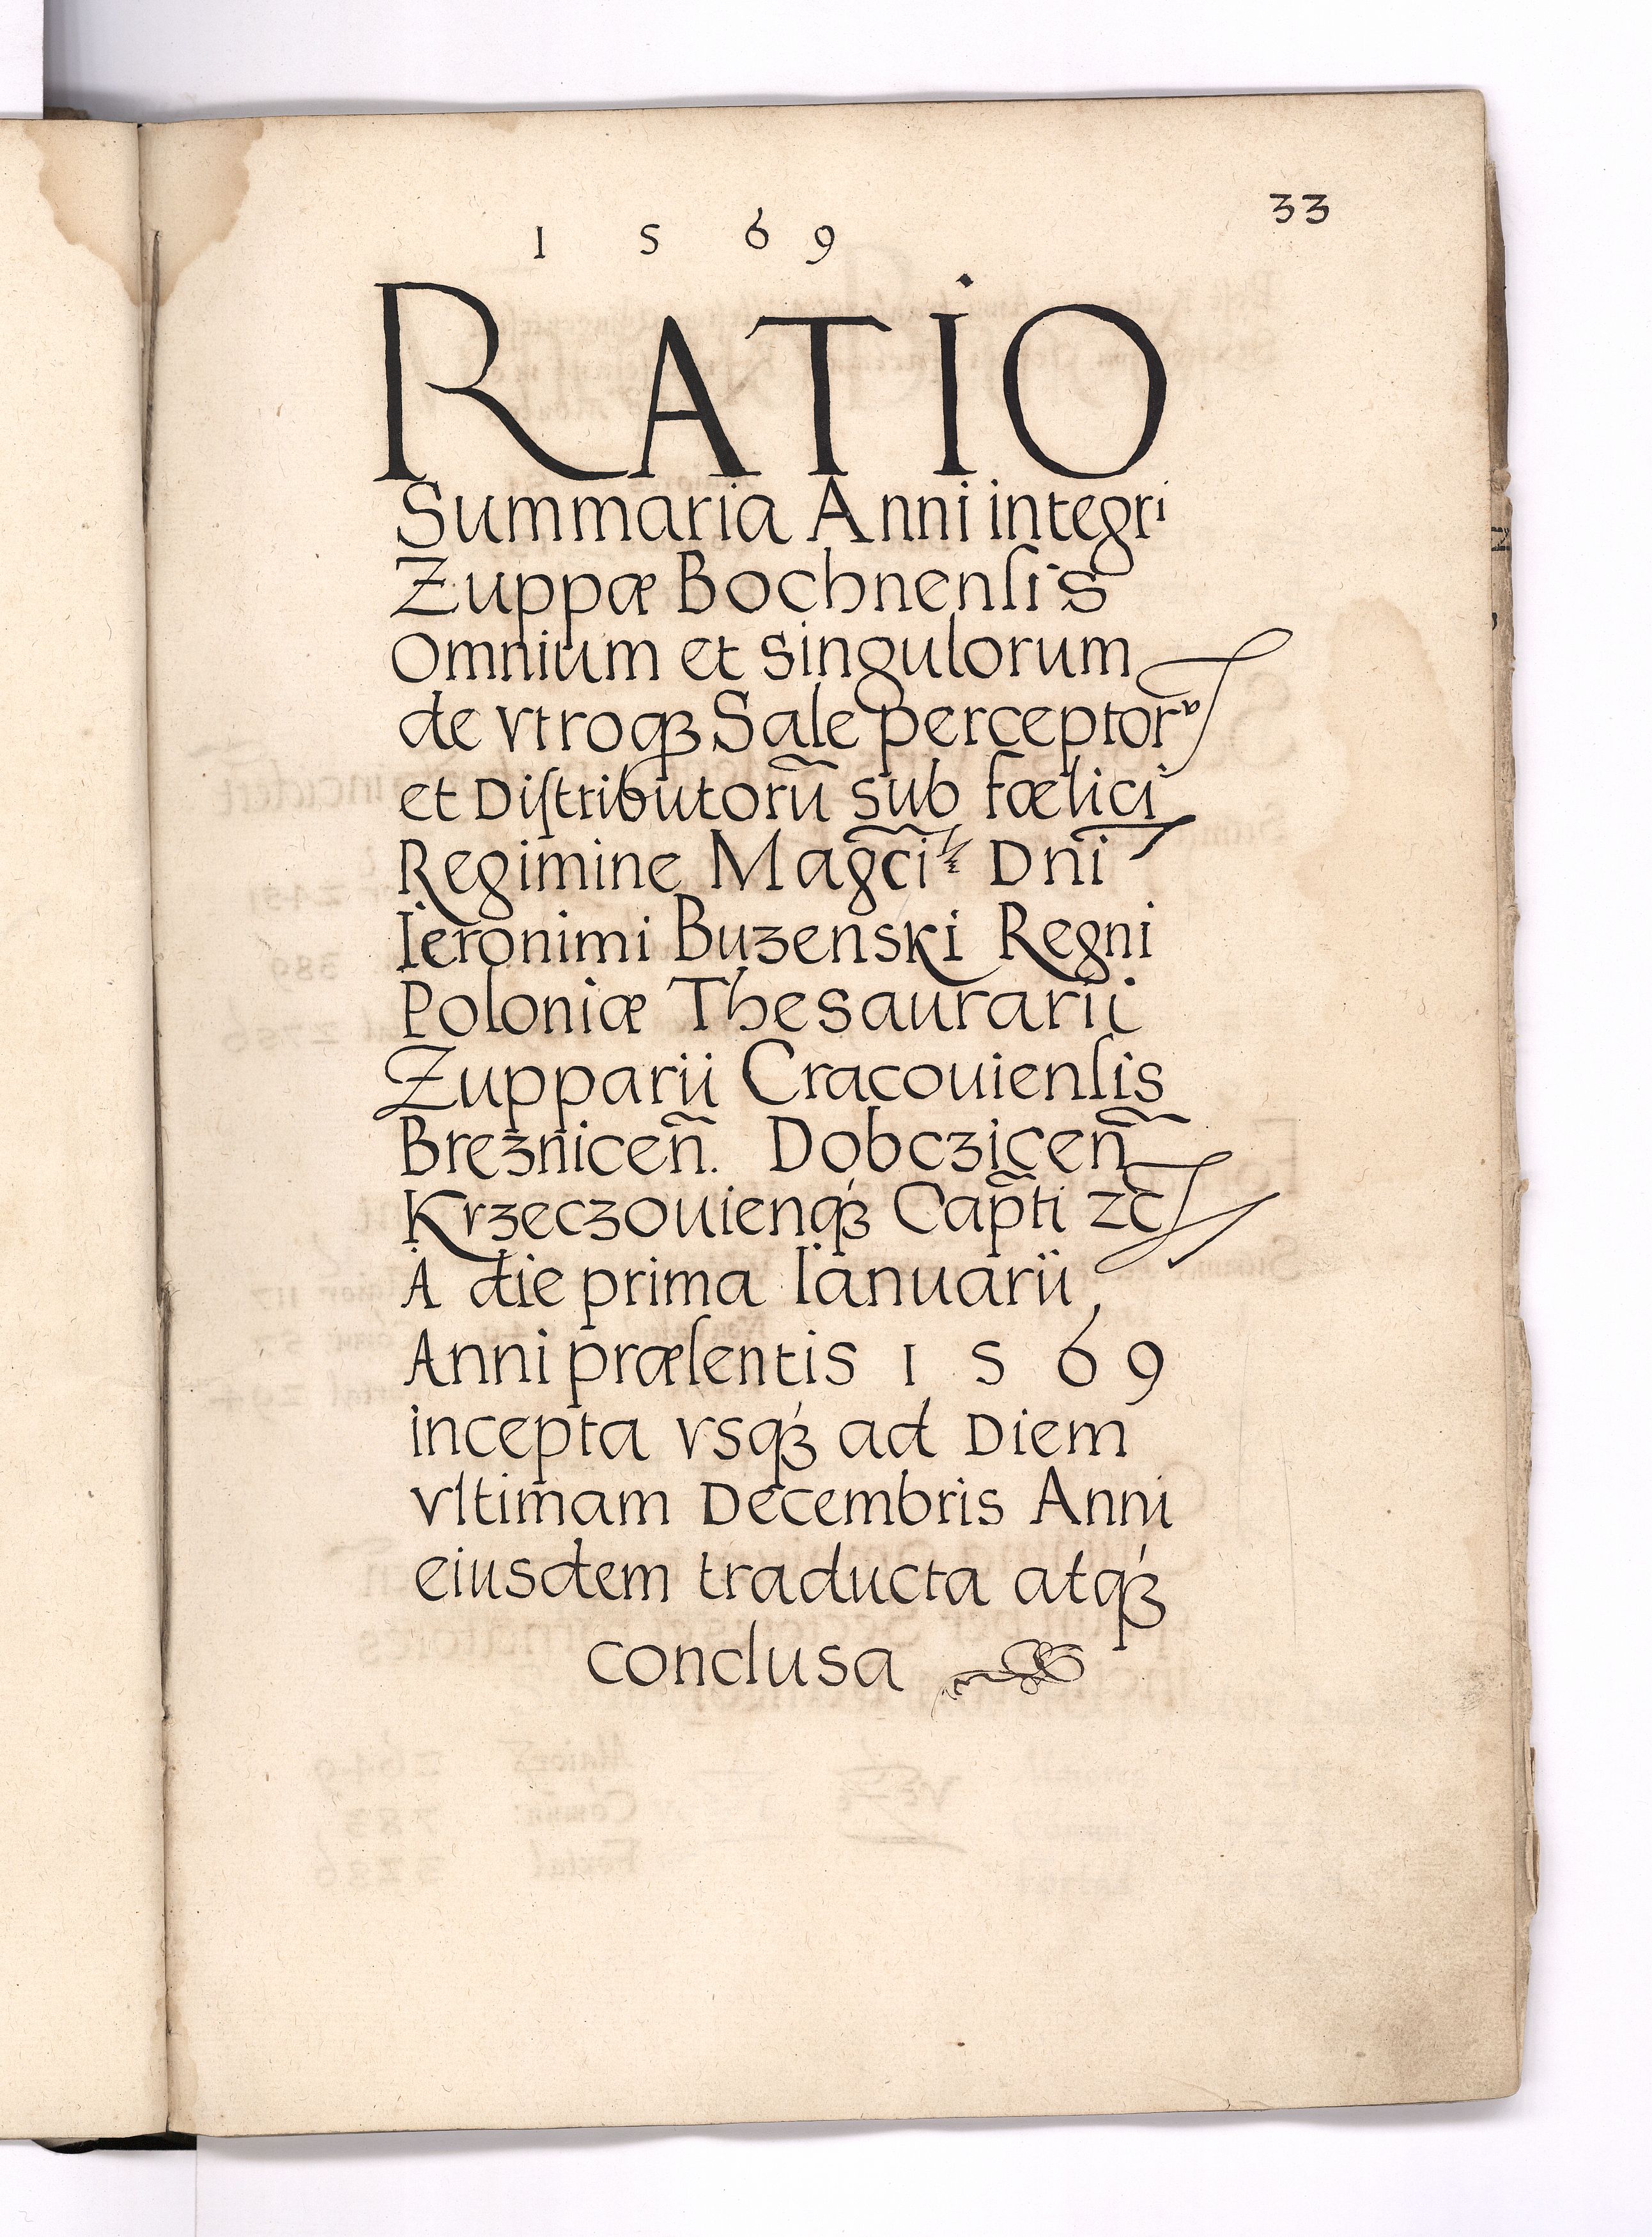 33
1 5 6 9
RATIO
Summaria Anni integri
Zuppæ Bochnenſis
Omnium et singulorum
de vtroqꝫ Sale perceptorᵛ
et Diſtributorũ sub fœlici
Regimine Magc̃i Dñi
Ieronimi Buzenski Regni
Poloniæ Thesaurarii
Zupparii Cracouienſis
Brezniceñ. Dobcziceñ
Krzeczouienqꝫ Cap̃ti zc̃
A die prima Ianuarii
Anni præſentis 1 5 6 9
incepta vsqꝫ ad Diem
vltimam Decembris Anni
eiusdem traducta atqꝫ
conclusa